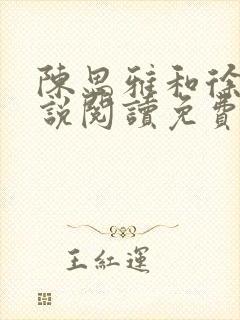 陳思雅和徐
說閱讀免費
王紅運